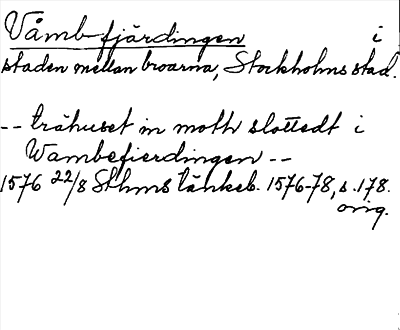 Våmb-fjärdingen i
staden mellan broarna, Stockholms stad.
-- trähuset in moth slottedt i
Wambefierdingen --
1576 22/8 Sthms tänkeb. 1576-78, s. 178.
orig.